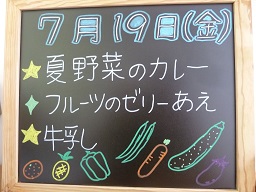 7月19日(金)
★夏野菜のカレー
✦フルーツのゼリーあえ
★牛乳